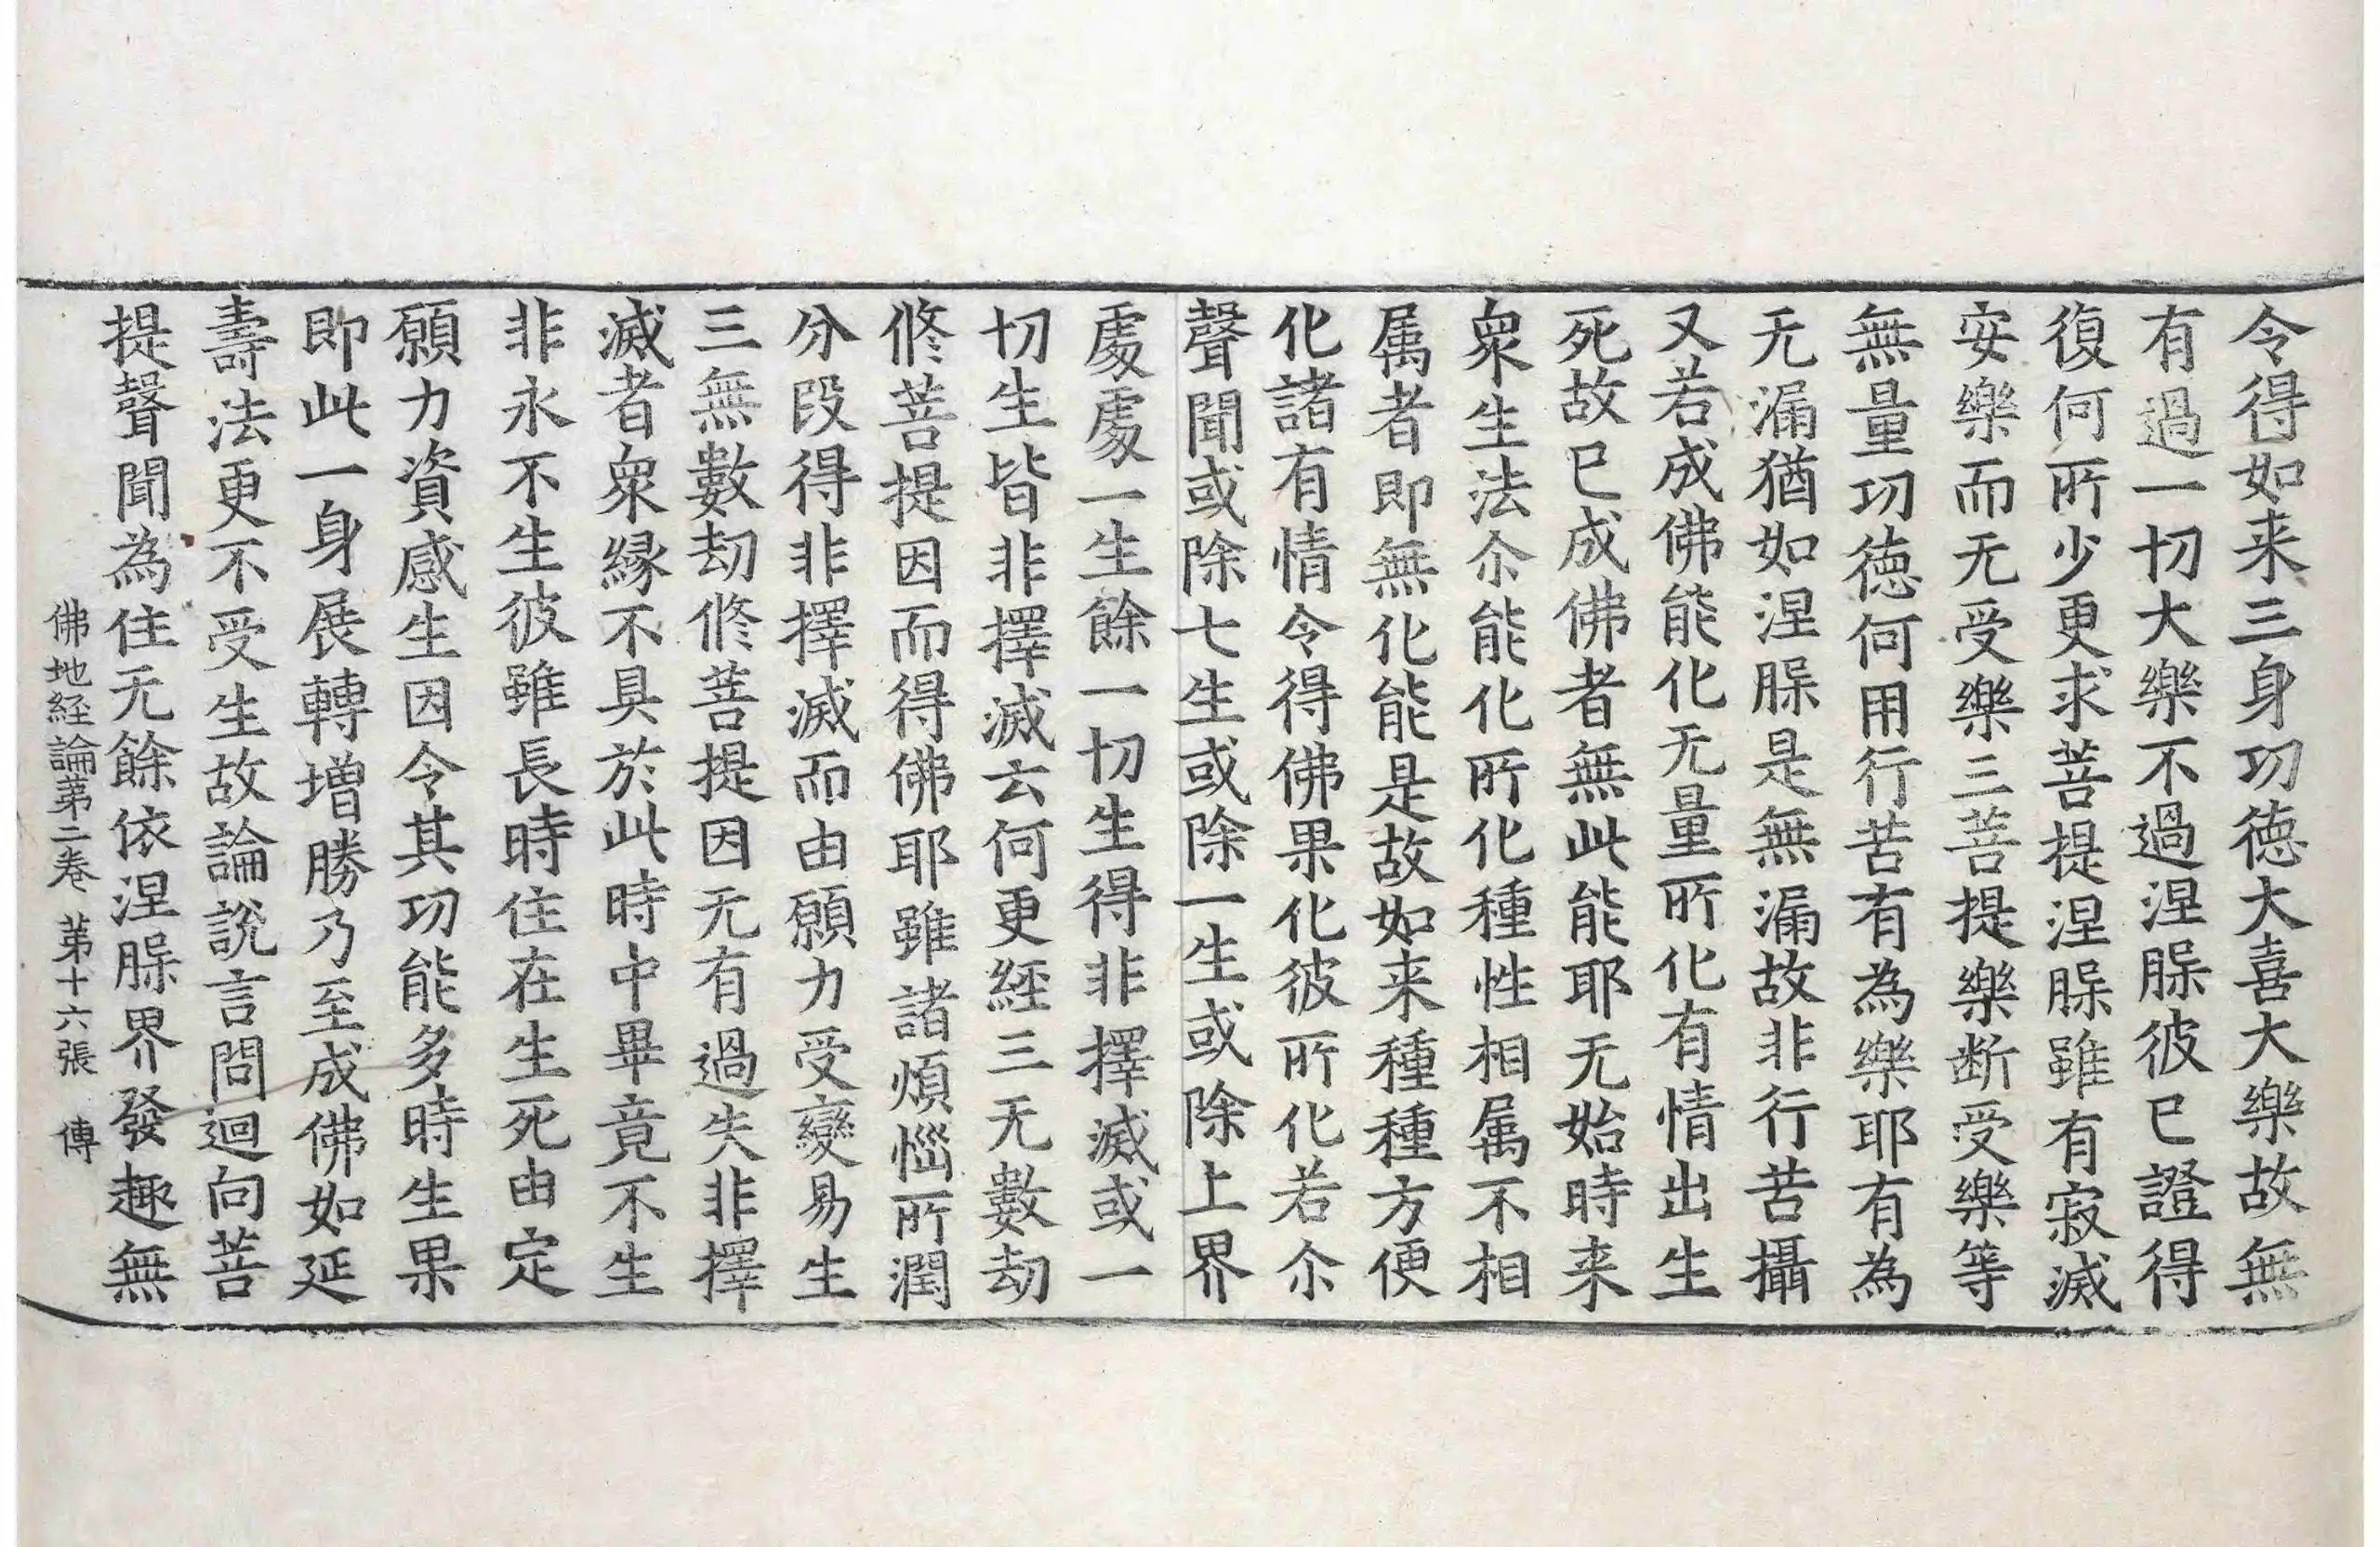 令得如来三身功徳大喜大樂故無
有過一切大樂不過涅槃彼已證得
復何所少更求菩提涅槃雖有寂滅
安樂而无受樂三菩提樂断受樂等
無量功徳何用行苦有為樂耶有為
无漏猶如涅槃是無漏故非行苦攝
又若成佛能化无量所化有情出生
死故已成佛者無此能耶无始時来
衆生法尒能化所化種性相属不相
属者即無化能是故如来種種方便
化諸有情令得佛果化彼所化若尒
聲聞或除七生或除一生或除上界
處處一生餘一切生得非擇滅或一
切生皆非擇滅云何更經三无數劫
修菩提因而得佛耶雖諸煩惱所潤
分段得非擇滅而由願力受變易生
三無數劫修菩提因无有過失非擇
滅者衆縁不具於此時中畢竟不生
非永不生彼雖長時住在生死由定
願力資感生因令其功能多時生果
即此一身展轉增勝乃至成佛如延
壽法更不受生故論說言問迴向菩
提聲聞為住无餘依涅槃界發趣無
佛地経論第二卷 第十六張 傳